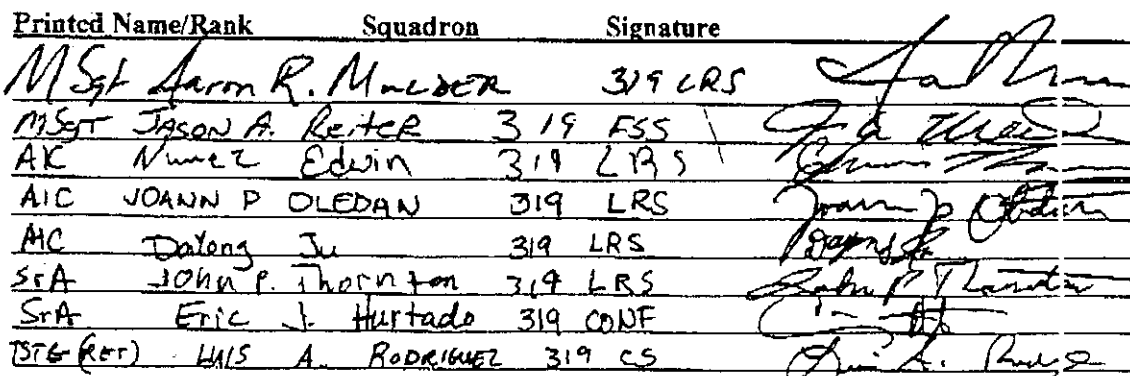 Printed Name/Rank Squadron Signature
MSgt Aaron R. MULDER 319 LRS
MSgt JASON A. ReiteR 319 FSS
A1C Nunez Edwin 319 LRS
A1C JOANN P OLEDAN 319 LRS Joann P Oledan
A1C Dalong Ju 319 LRS
SrA John P. Thornton 319 LRS John P Thornton
SrA Eric J. Hurtado 319 CONF
TSTG (RET) LUIS A. RODRIGUEZ 319 CS